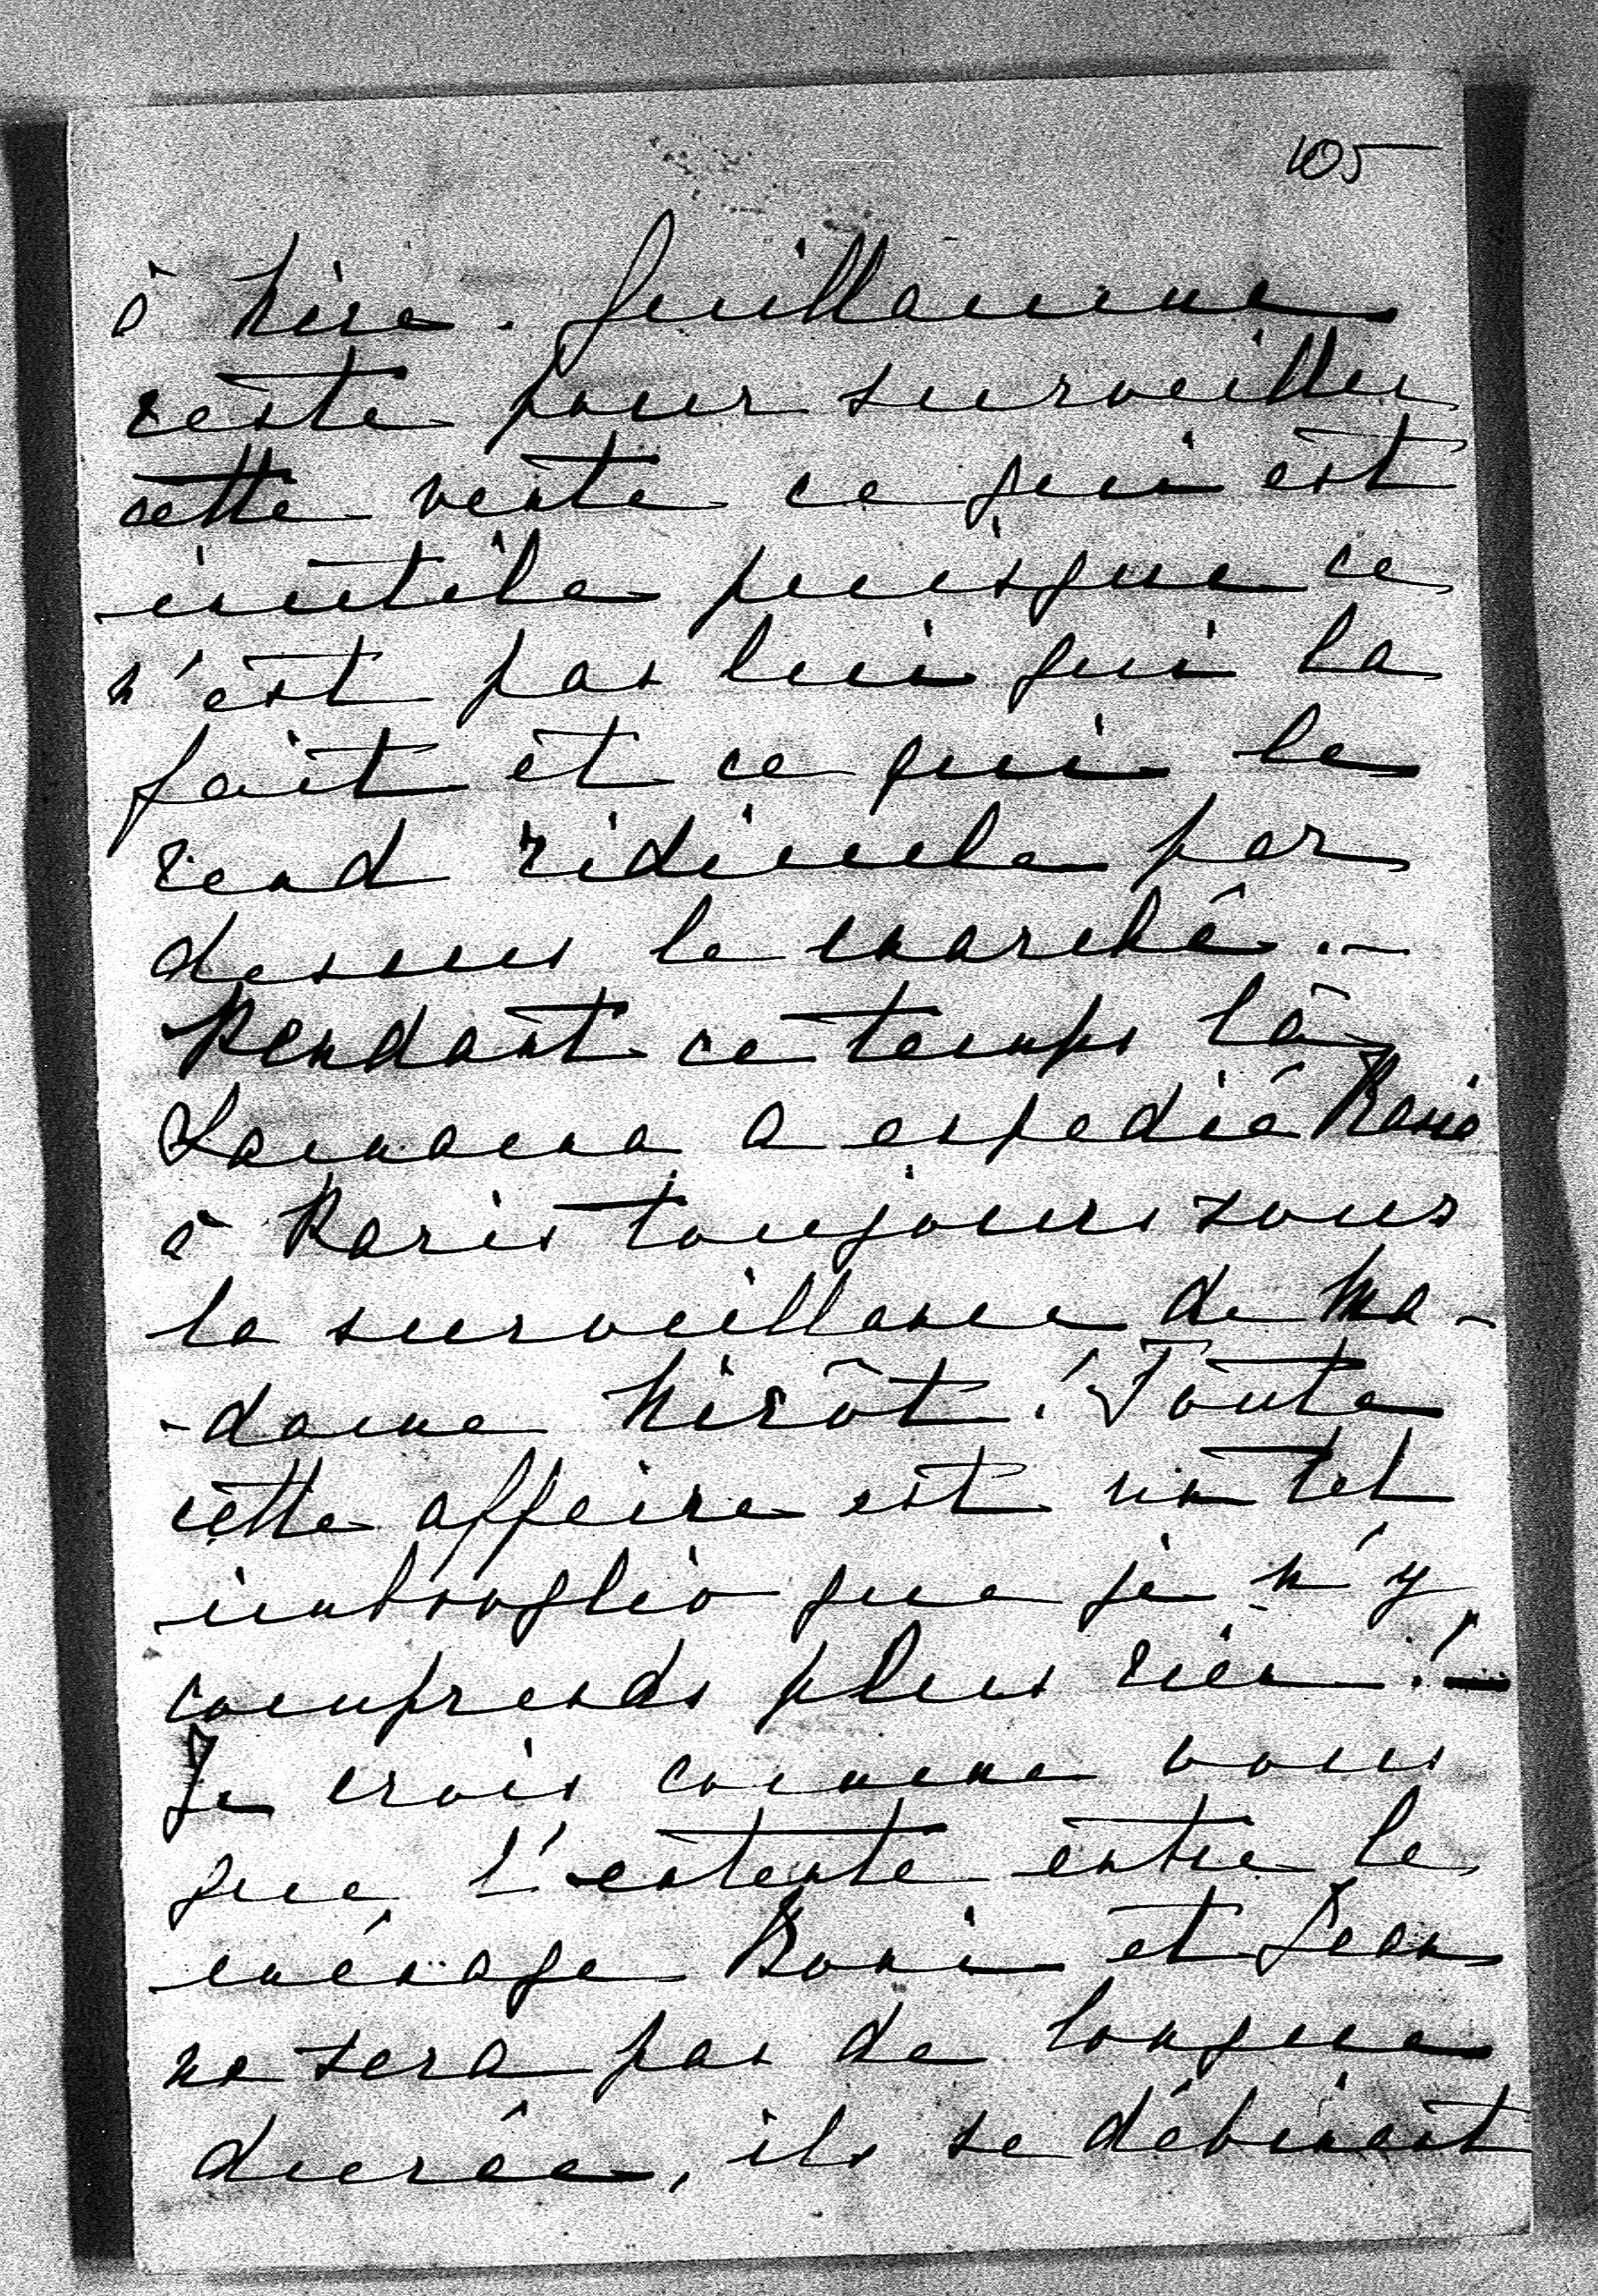 105
à Nice. Guillaume
reste pour surveiller
cette vente ce qui est
inutile puisque ce
n'est pas lui qui la
fait et ce qui le
rend ridicule par
dessus le marché. —
Pendant ce temps là
Lamana a expedié
à Paris toujours sous
la surveillance de Ma-
-dame Nirot! Toute
cette affaire est un tel
imbroglio que je n'y
comprends plus rien! —
Je crois comme vous
que l'entente entre le
ménage Boni et Jean
ne sera pas de longue
durée, ils se débinent